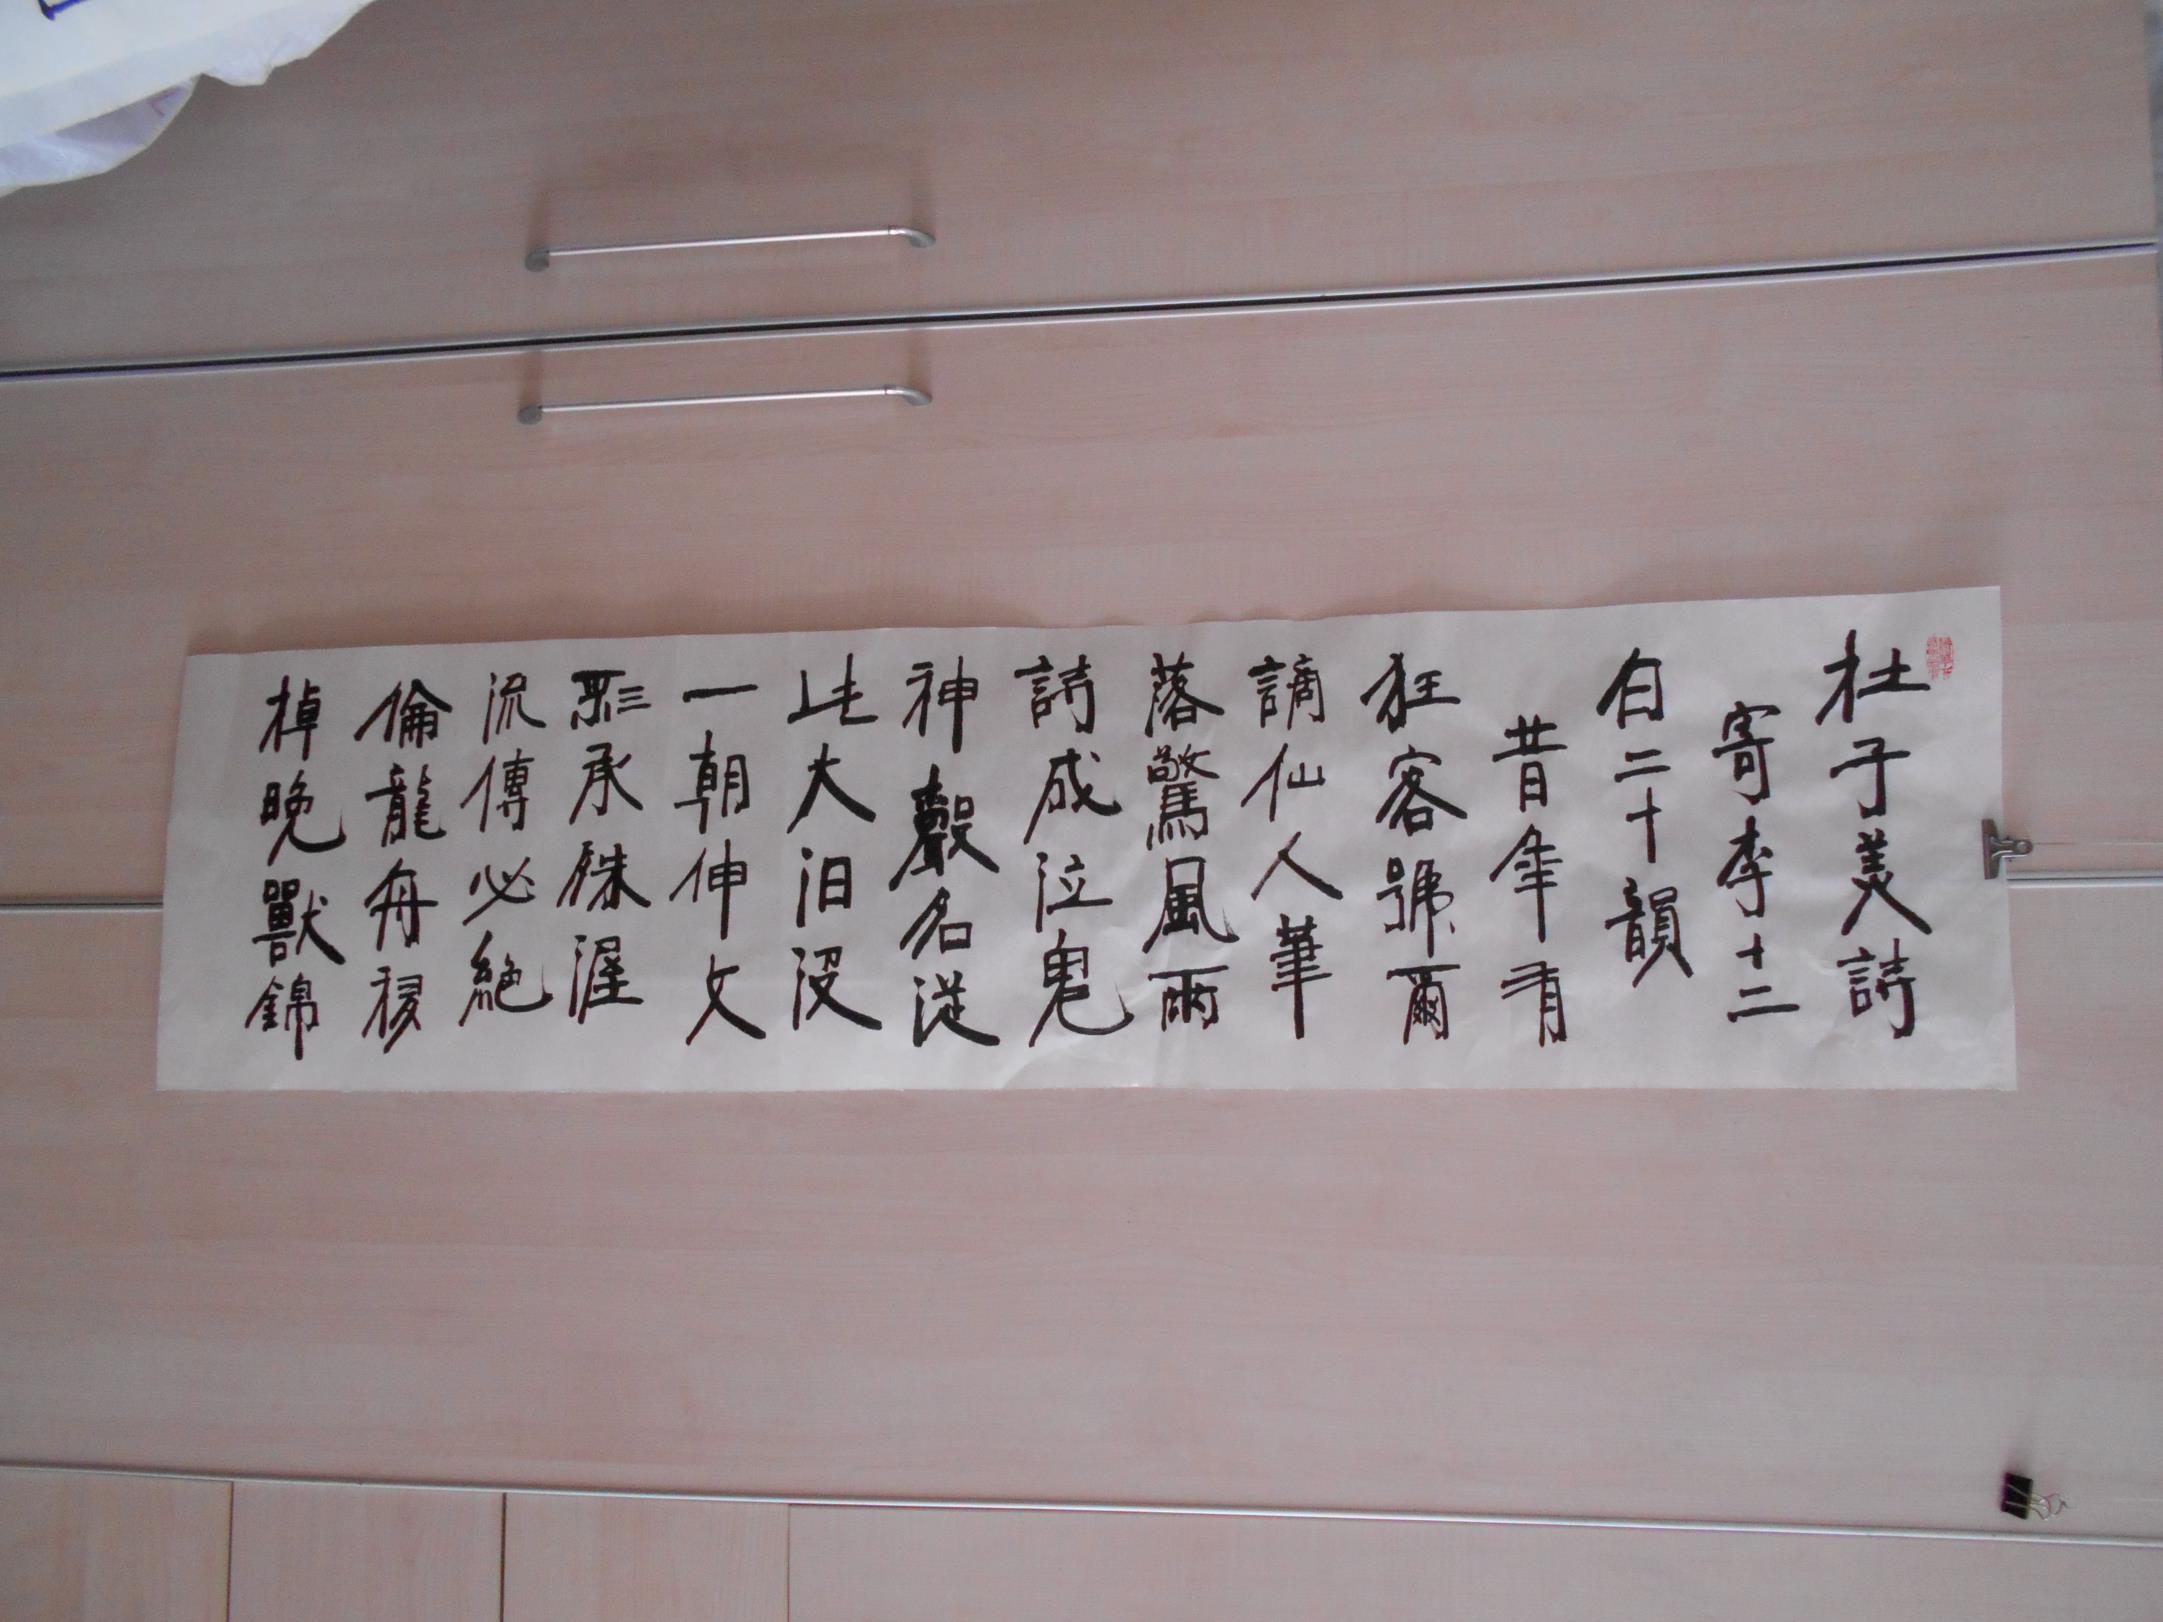 杜子美詩
寄李十二
白二十韻
昔年有
狂客號爾
謫仙人筆
落驚風雨
詩成泣鬼
神聲名從
此大汨沒
一朝伸文
彩承殊渥
流傳必絕
倫龍舟移
棹晚獸錦